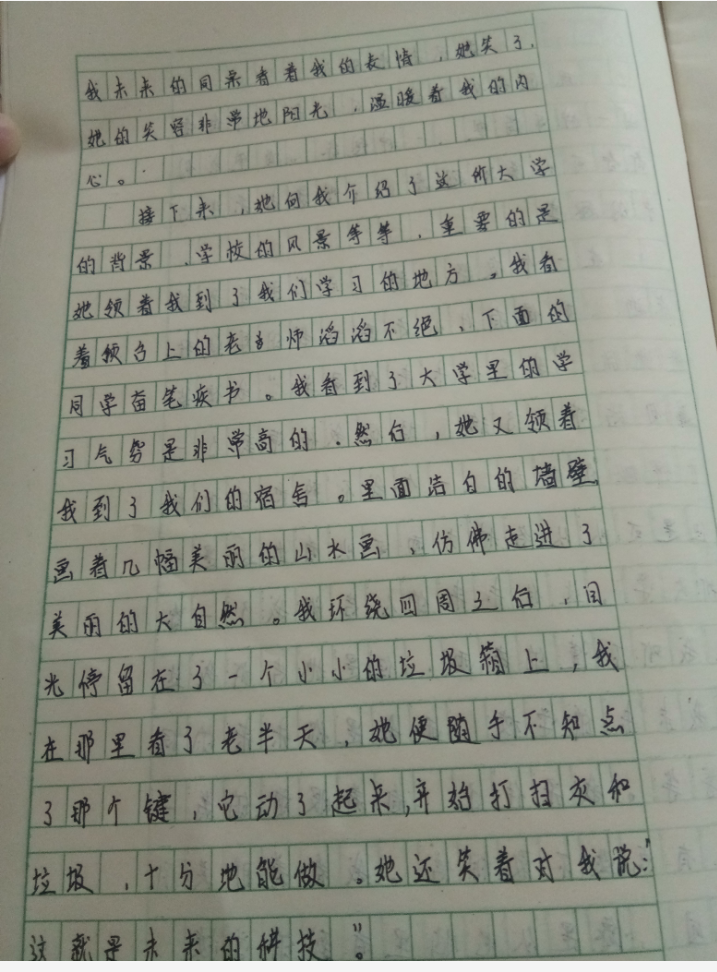 我未来的同桌看着我的表情，她笑了，
她的笑容非常地阳光，温暖着我的内
心。
接下来，她向我介绍了这所大学
的背景、学校的风景等等，重要的是
她领着我到了我们学习的地方。我看
着领台上的老师滔滔不绝、下面的
同学奋笔疾书。我看到了大学里的学
习气氛是非常高的。然后，她又领着
我到了我们的宿舍。里面洁白的墙壁
画着几幅美丽的山水画，仿佛走进了
美丽的大自然。我环绕四周之后，目
光停留在了一个小小的垃圾箱上，我
在那里看了老半天，她便随手不知点
了那个键，它动了起来，开始打扫灰和
垃圾，十分地能做。她还笑着对我说："
这就是未来的科技"。